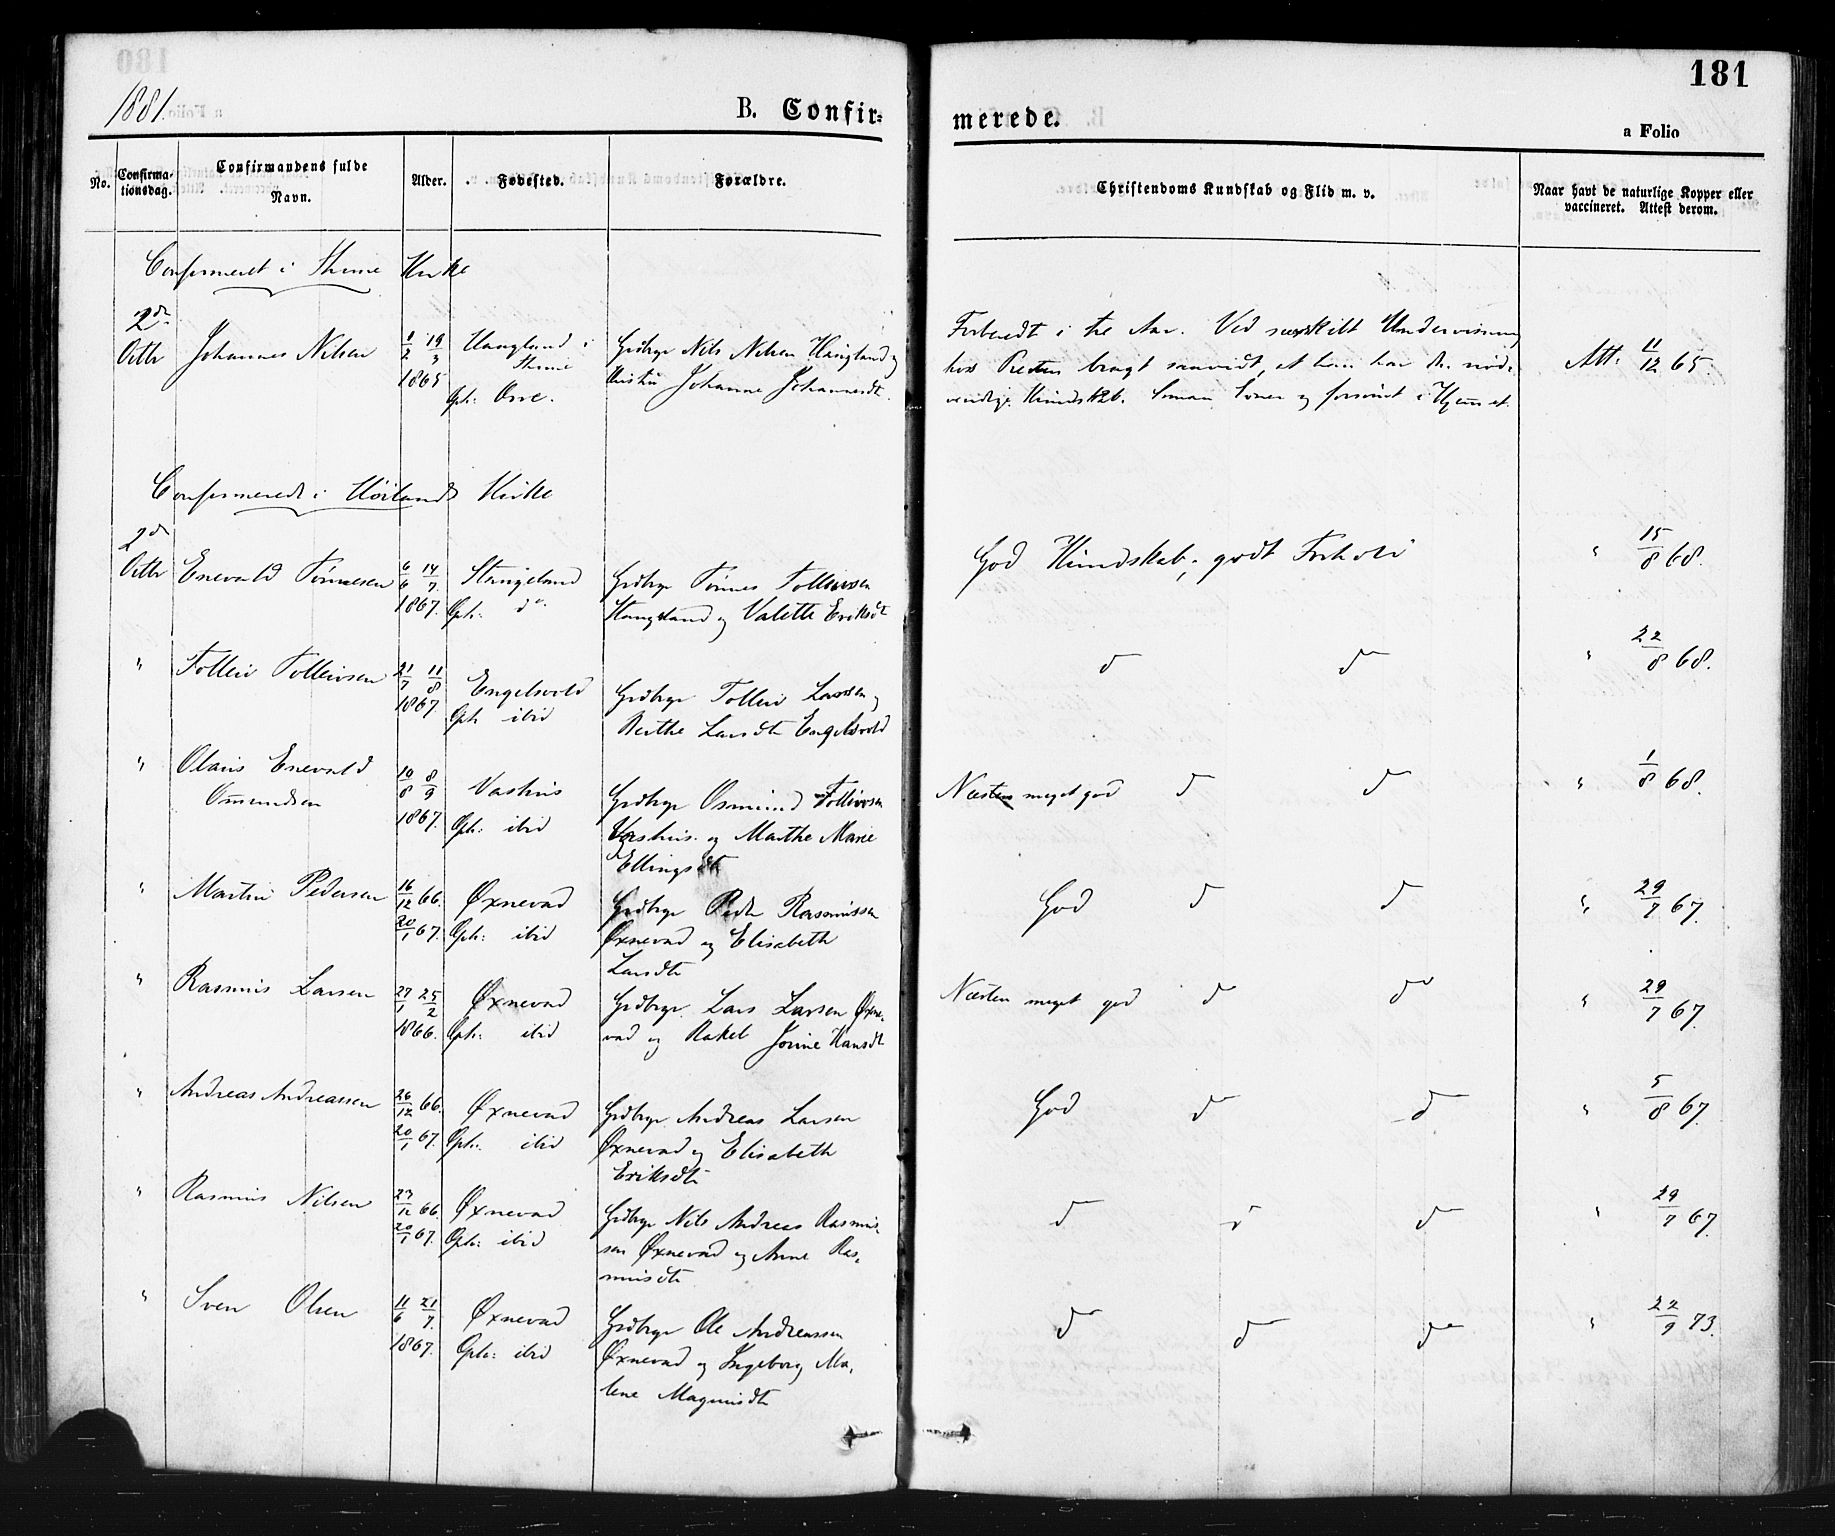 181
1881.
B. Confir-
merede.
a Folio
No.
Confirma-
tionsdag.
Confirmandens fulde
Navn.
Alder.
Fødested.
Forældre.
Christendoms Kundskab og Flid m. v.
Naar havt de naturlige Kopper eller
vaccineret. Attest derom.
Confirmeret i Thime Kirke
2den
Octbr Johannes Nilsen 1/2 19/3 1865
Haugland i
Thime
Gdbrgr Nils Nilsen Haugland og
Johanne Johannesdtr.
Forberedt i tre Aar. Ved særskilt Undervisning
hos Presten bragt saavidt, at han har den nød-
vendige Kundskab.
Att: 11/12 65.
Confirmerede i Høilands Kirke
2den
Octbr Enevald Tønnesen 6/6 14/7 1867.
Stangeland
Oph: do
Gdbrgr Tønnes Tolleivsen
Stangeland og Valette Eriksdtr
God Kundskab, godt Forhold
" 15/8 68.
" Tolleiv Tolleivsen 21/7 11/8 1867.
Engelsvold
Oph ibid
Gdbrgr Tolleiv Larsen og
Berthe Larsdtr Engelsvold
do do
" 22/8 68.
" Olaus Enevald
Osmundsen 10/8 8/9 1867.
Vashus
Oph: ibid
Gdbrgr Osmund Tolleivsen
Vashus og Marthe Marie
Ellingsdtr
Næsten meget god do do
" 1/8 68.
" Martin Pedersen 16/12 66. 20/1 67.
Øxnevad
Oph: ibid
Gdbrgr Peder Rasmussen
Øxnevad og Elisabeth
Larsdtr
God do do
" 29/7 67.
" Rasmus Larsen 27/1 25/2 1866.
Øxnevad
Oph: ibid
Gdbrgr Lars Larsen Øxne-
vad og Rakel Jorine Hansdtr
Næsten meget god do do
" 29/7 67.
" Andreas Andreassen 26/12 66. 20/1 67.
Øxnevad
Oph: ibid
Gdbrgr Andreas Larsen
Øxnevad og Elisabeth
Eriksdtr
God do do
" 5/8 67.
" Rasmus Nilsen 27/12 66. 20/1 67.
Øxnevad
Oph: ibid
Gdbrgr Nils Andreas Rasmus-
sen Øxnevad og Anne Ras-
musdtr
do do do
" 29/7 67.
" Sven Olsen 11/6 21/7. 1867.
Øxnevad
Oph: ibid
Gdbrgr Ole Andreassen
Øxnevad og Ingeborg Ma-
lene Magnusdtr
do do do
" 22/9 73.